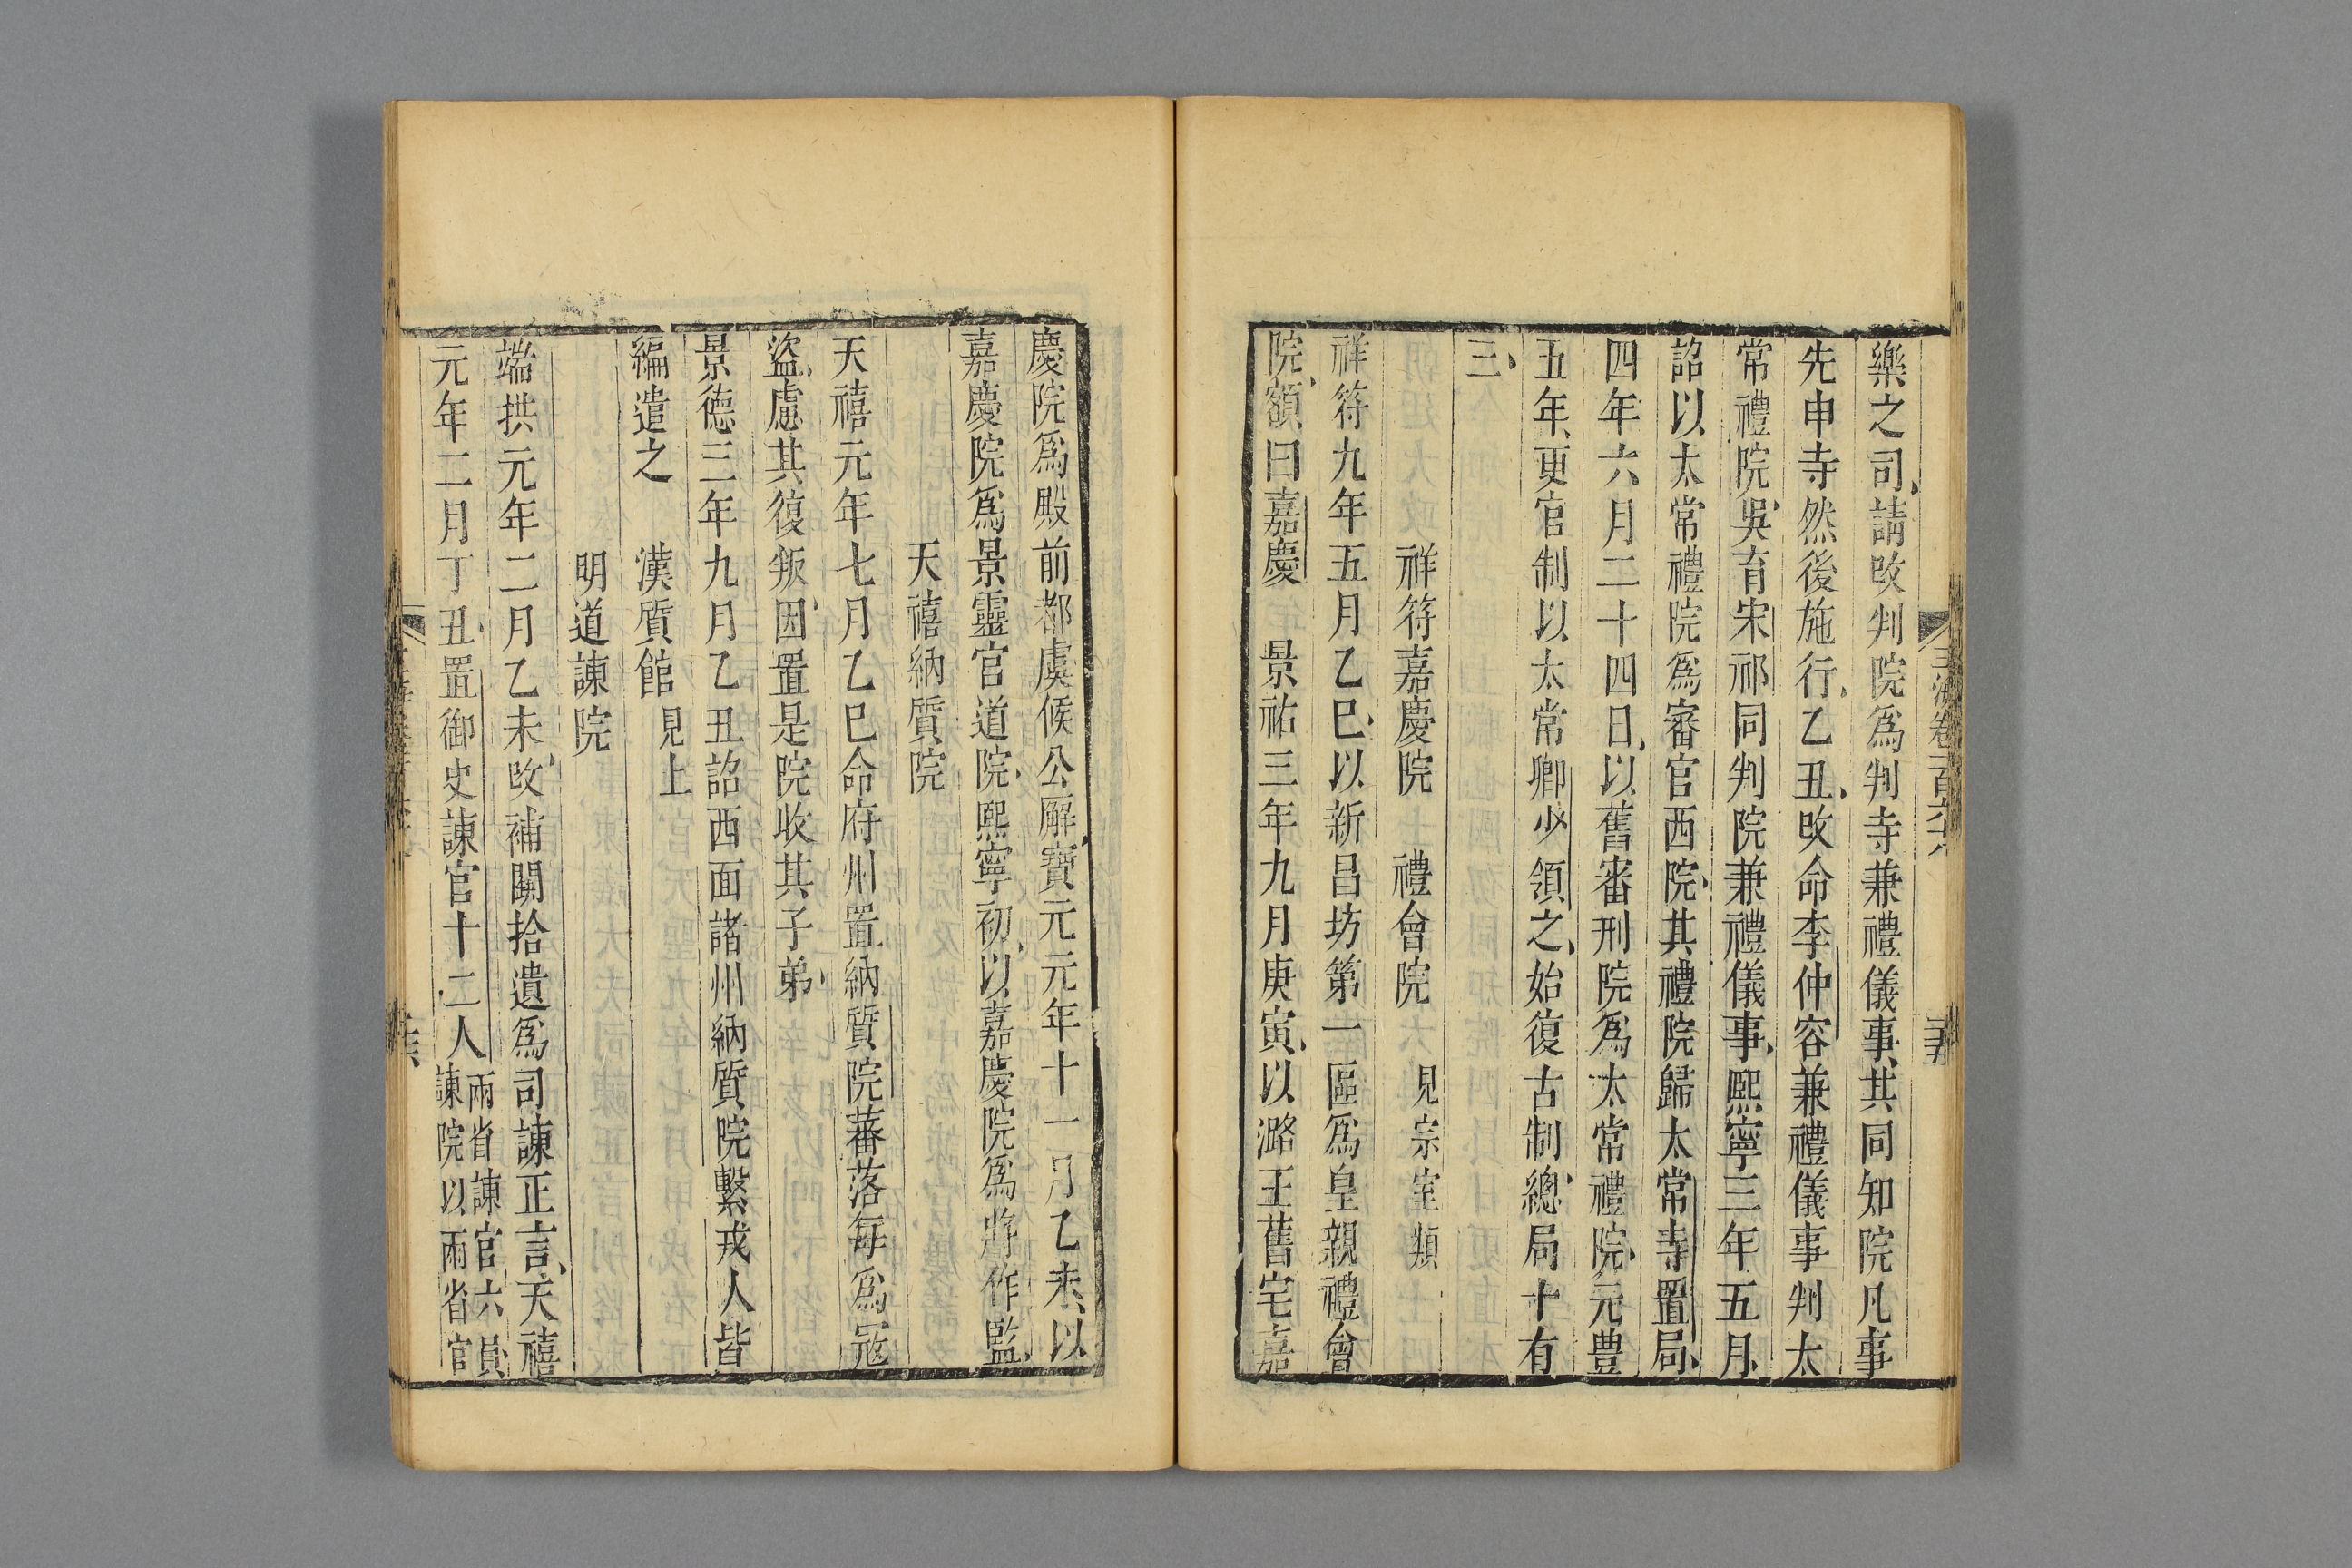 樂之司請改判院爲判寺兼禮儀事其同知院凡事
先申寺然後施行乙丑改命李仲容兼禮儀事判太
常禮院吳育宋祁同判院兼禮儀事熙寧三年五月
詔以太常禮院爲審官西院其禮院歸太常寺置局
四年六月二十四日以舊審刑院爲太常禮院元豊
五年更官制以太常卿少領之始復古制緫局十有
三
祥符嘉慶院 禮會院 見宗室類
祥符九年五月乙巳以新昌坊第一區爲皇親禮會
院額曰嘉慶 景祐三年九月庚寅以潞王舊宅嘉
玉海卷一百六十八
二十五
慶院爲殿前都虞候公廨寶元元年十一月乙未以
嘉慶院爲景靈宮道院熙寧初以嘉慶院爲將作監
天禧納質院
天禧元年七月乙巳命府州置納質院蕃落每爲寇
盜慮其復叛因置是院收其子弟
景德三年九月乙丑詔西面諸州納質院繫戎人皆
編遣之 漢質館 見上
明道諫院
端拱元年二月乙未改補闕拾遺爲司諫正言天禧
元年二月丁丑置御史諫官十二人兩省諫官六員
諫院以兩省官